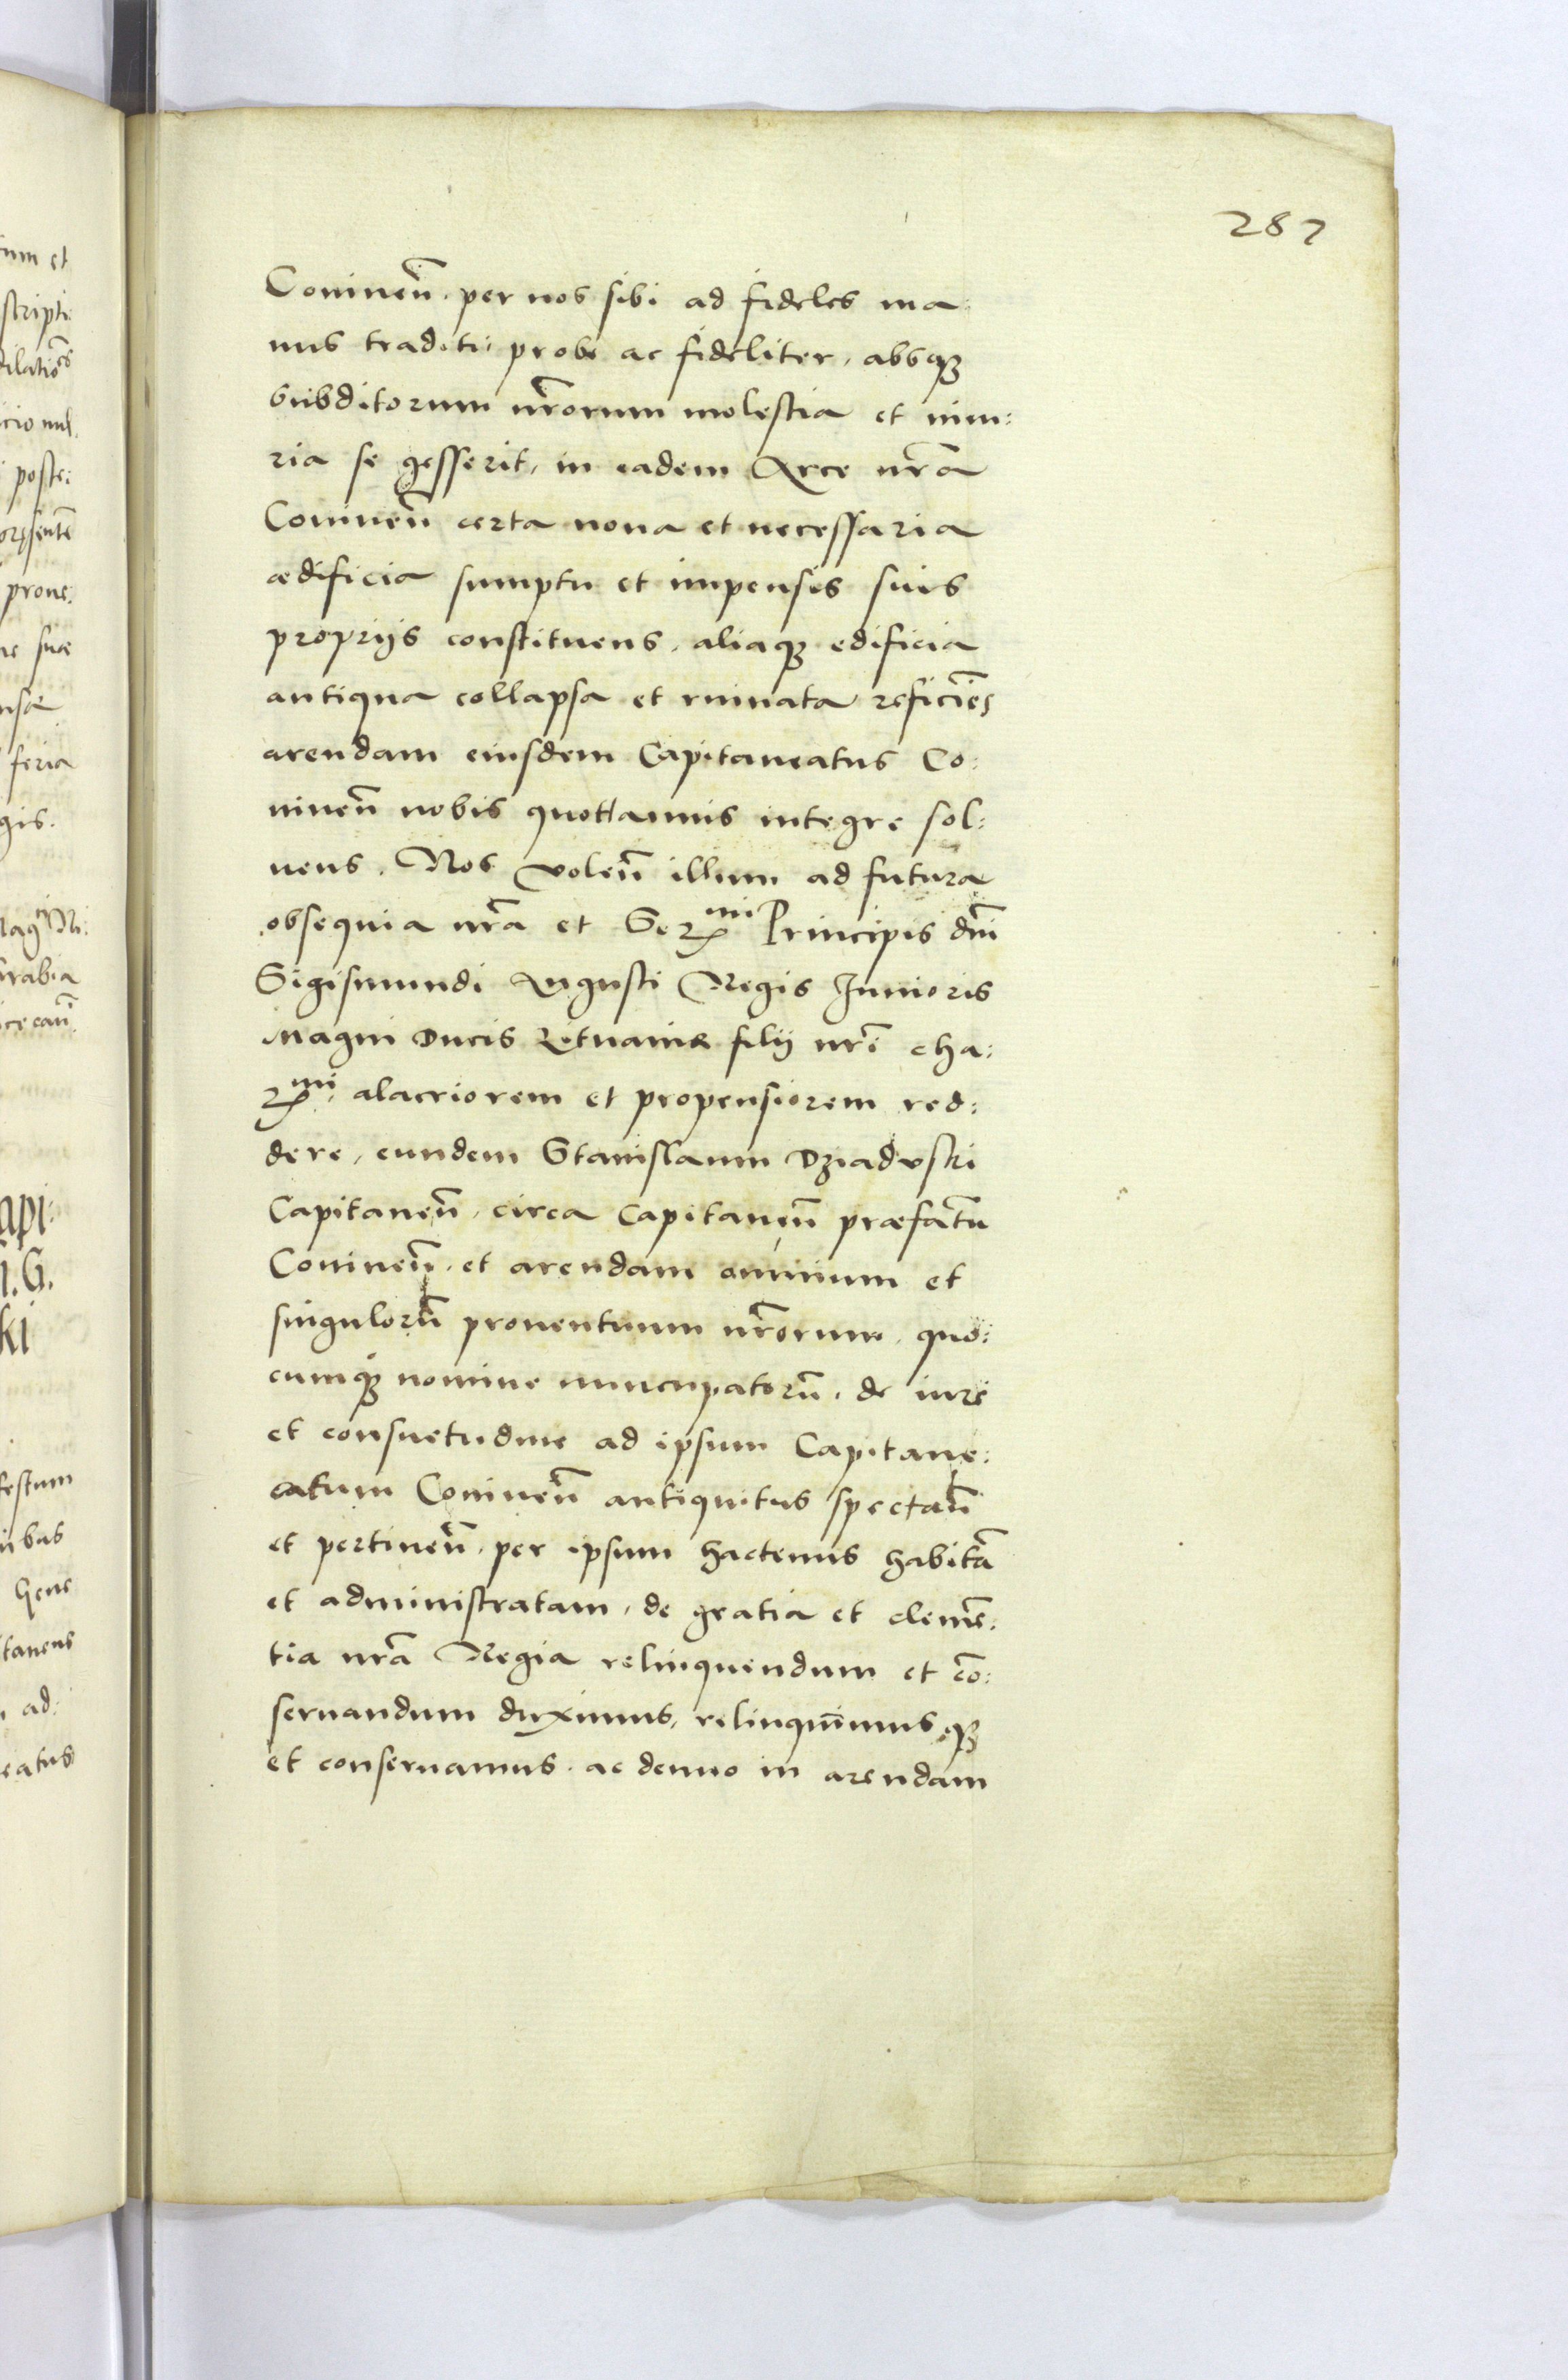 287
Coninen̄. per nos sibi ad fideles ma:
nus traditi: probe ac fideliter, absqȝ
subditorum nr̄orum molestia et iniu:
ria se gesserit, in eadem Arce nr̄a
Coninen̄ certa noua et necessaria
ædificia sumptu et impensis suis
proprijs constituens, aliaqȝ edificia
antiqua collapsa et ruinata reficiēs
arendam eiusdem Capitaneatus Co:
ninen̄ nobis quottannis integre sol:
uens. Nos volen̄ illum ad futura
obsequia nr̄a et Serᵐⁱ Principis dn̄i
Sigismundi Augusti Regis Junioris
Magni Ducis Lituaniæ filij nr̄i cha:
rᵐⁱ alacriorem et propensiorem red:
dere, eundem Stanislaum Dziaduski
Capitanen̄, circa Capitanen̄ præfatū
Coninen̄. et arendam omnium et
singulorū prouentuum nr̄orum, quo:
cumqȝ nomine nuncupatorū, de iure
et consuetudine ad ipsum Capitane:
atum Coninen̄ antiquitus spectan̄
et pertinen̄. per ipsum hactenus habitā
et administratam, de gratia et clemē:
tia nr̄a Regia relinquendum et cō:
seruandum duximus, relinquimusqȝ
et conseruamus. ac denuo in arendam